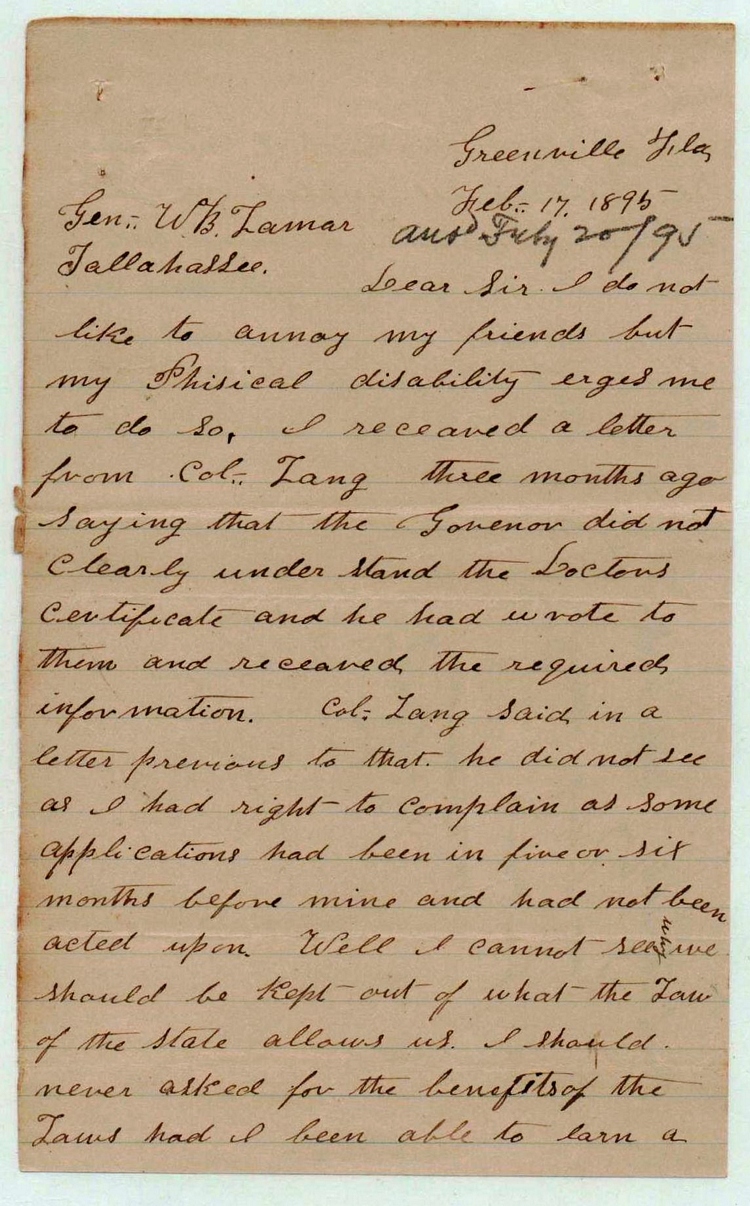 Greenville Fla
Feb. 17, 1895
Gen. W.B. Lamar
ansd Feby 20/95
Tallahassee.
Dear Sir. I do not
like to annoy my friends but
my Phisical disability erges me
to do so, I receaved a letter
from Col. Lang three months ago
saying that the Govenor did not
clearly under stand the Doctors
certificate and he had wrote to
them and receaved the required
information. Col. Lang said in a
letter previous to that. he did not see
as I had right to complain as some
applications had been in five or six
months before mine and had not been
acted upon. Well I cannot see why we
should be Kept out of what the Law
of the state allows us. I should.
never asked for the benefits of the
Laws had I been able to earn a